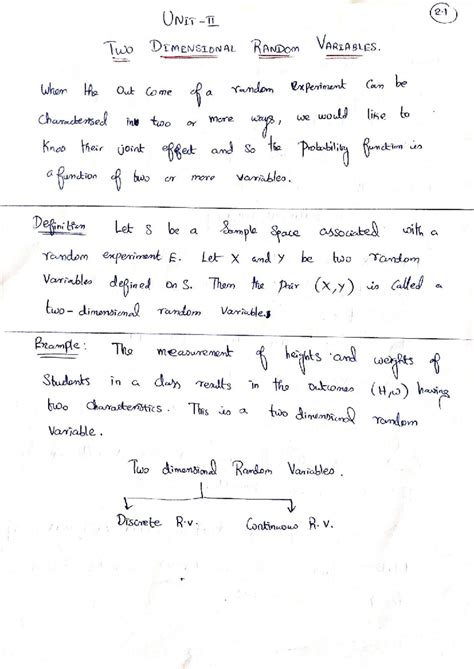 2.1
UNIT-II
TWO DIMENSIONAL RANDOM VARIABLES.
When the Out Come of a random Experiment Can be
Characterised in two or more ways, we would like to
Know their joint effect and so the Probability function is
a function of two or more variables.
Definition Let S be a Sample Space associated with a
random experiment E. Let X and Y be two random
Variables defined on S. Then the Pair (X,Y) is Called a
two-dimensional random Variables
Example: The measurement of heights and weights of
Students in a class results in the outcomes (H,W) having
two characteristics. This is a two dimensional random
Variable.
Two dimensional Random Variables.
Discrete R.v. Continuous R.v.